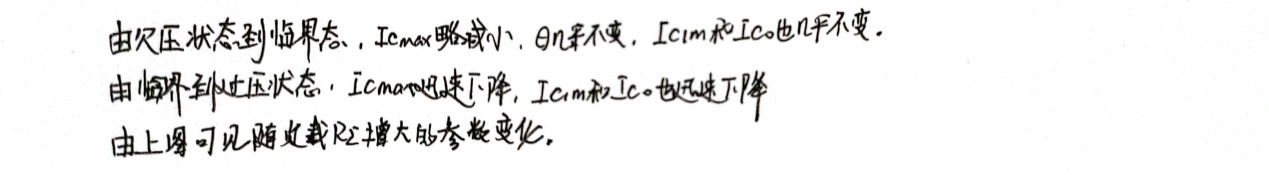 由欠压状态到临界态，Icmax略减小，θ几乎不变，Ic1m和Ic0也几乎不变.
由临界到过压状态，Icmax迅速下降，Ic1m和Ic0也迅速下降
由上图可见随负载RΣ增大的参数变化。